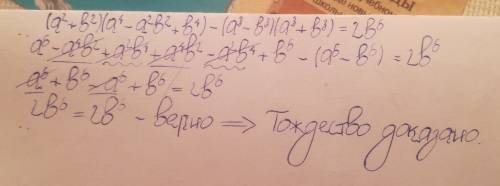 (a²+b²)(a⁴-a²b²+b⁴)-(a³-b³)(a³+b³)=2b⁶
a⁶-a⁴b²+a²b⁴+a⁴b²-a²b⁴+b⁶-(a⁶-b⁶)=2b⁶
a⁶+b⁶-a⁶+b⁶=2b⁶
2b⁶=2b⁶-верно ⟹ Тождество доказано.